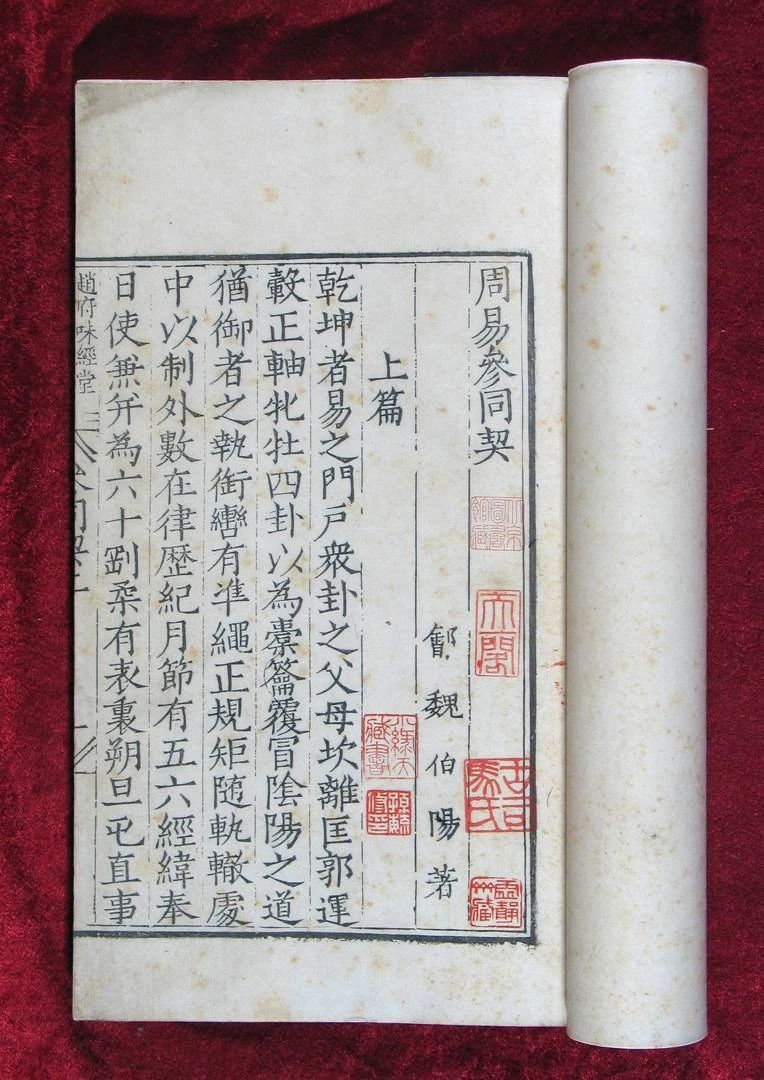 周易參同契
鄶魏伯陽著
上篇
乾坤者易之門戶衆卦之父母坎離匡郭運
轂正軸牝牡四卦以為橐籥覆冒陰陽之道
猶御者之執銜轡有準繩正規矩随軌轍處
中以制外數在律歷紀月節有五六經緯奉
日使兼并為六十剛柔有表裏朔旦屯直事
趙府味經堂
天閣
古司馬氏
孫毓修印